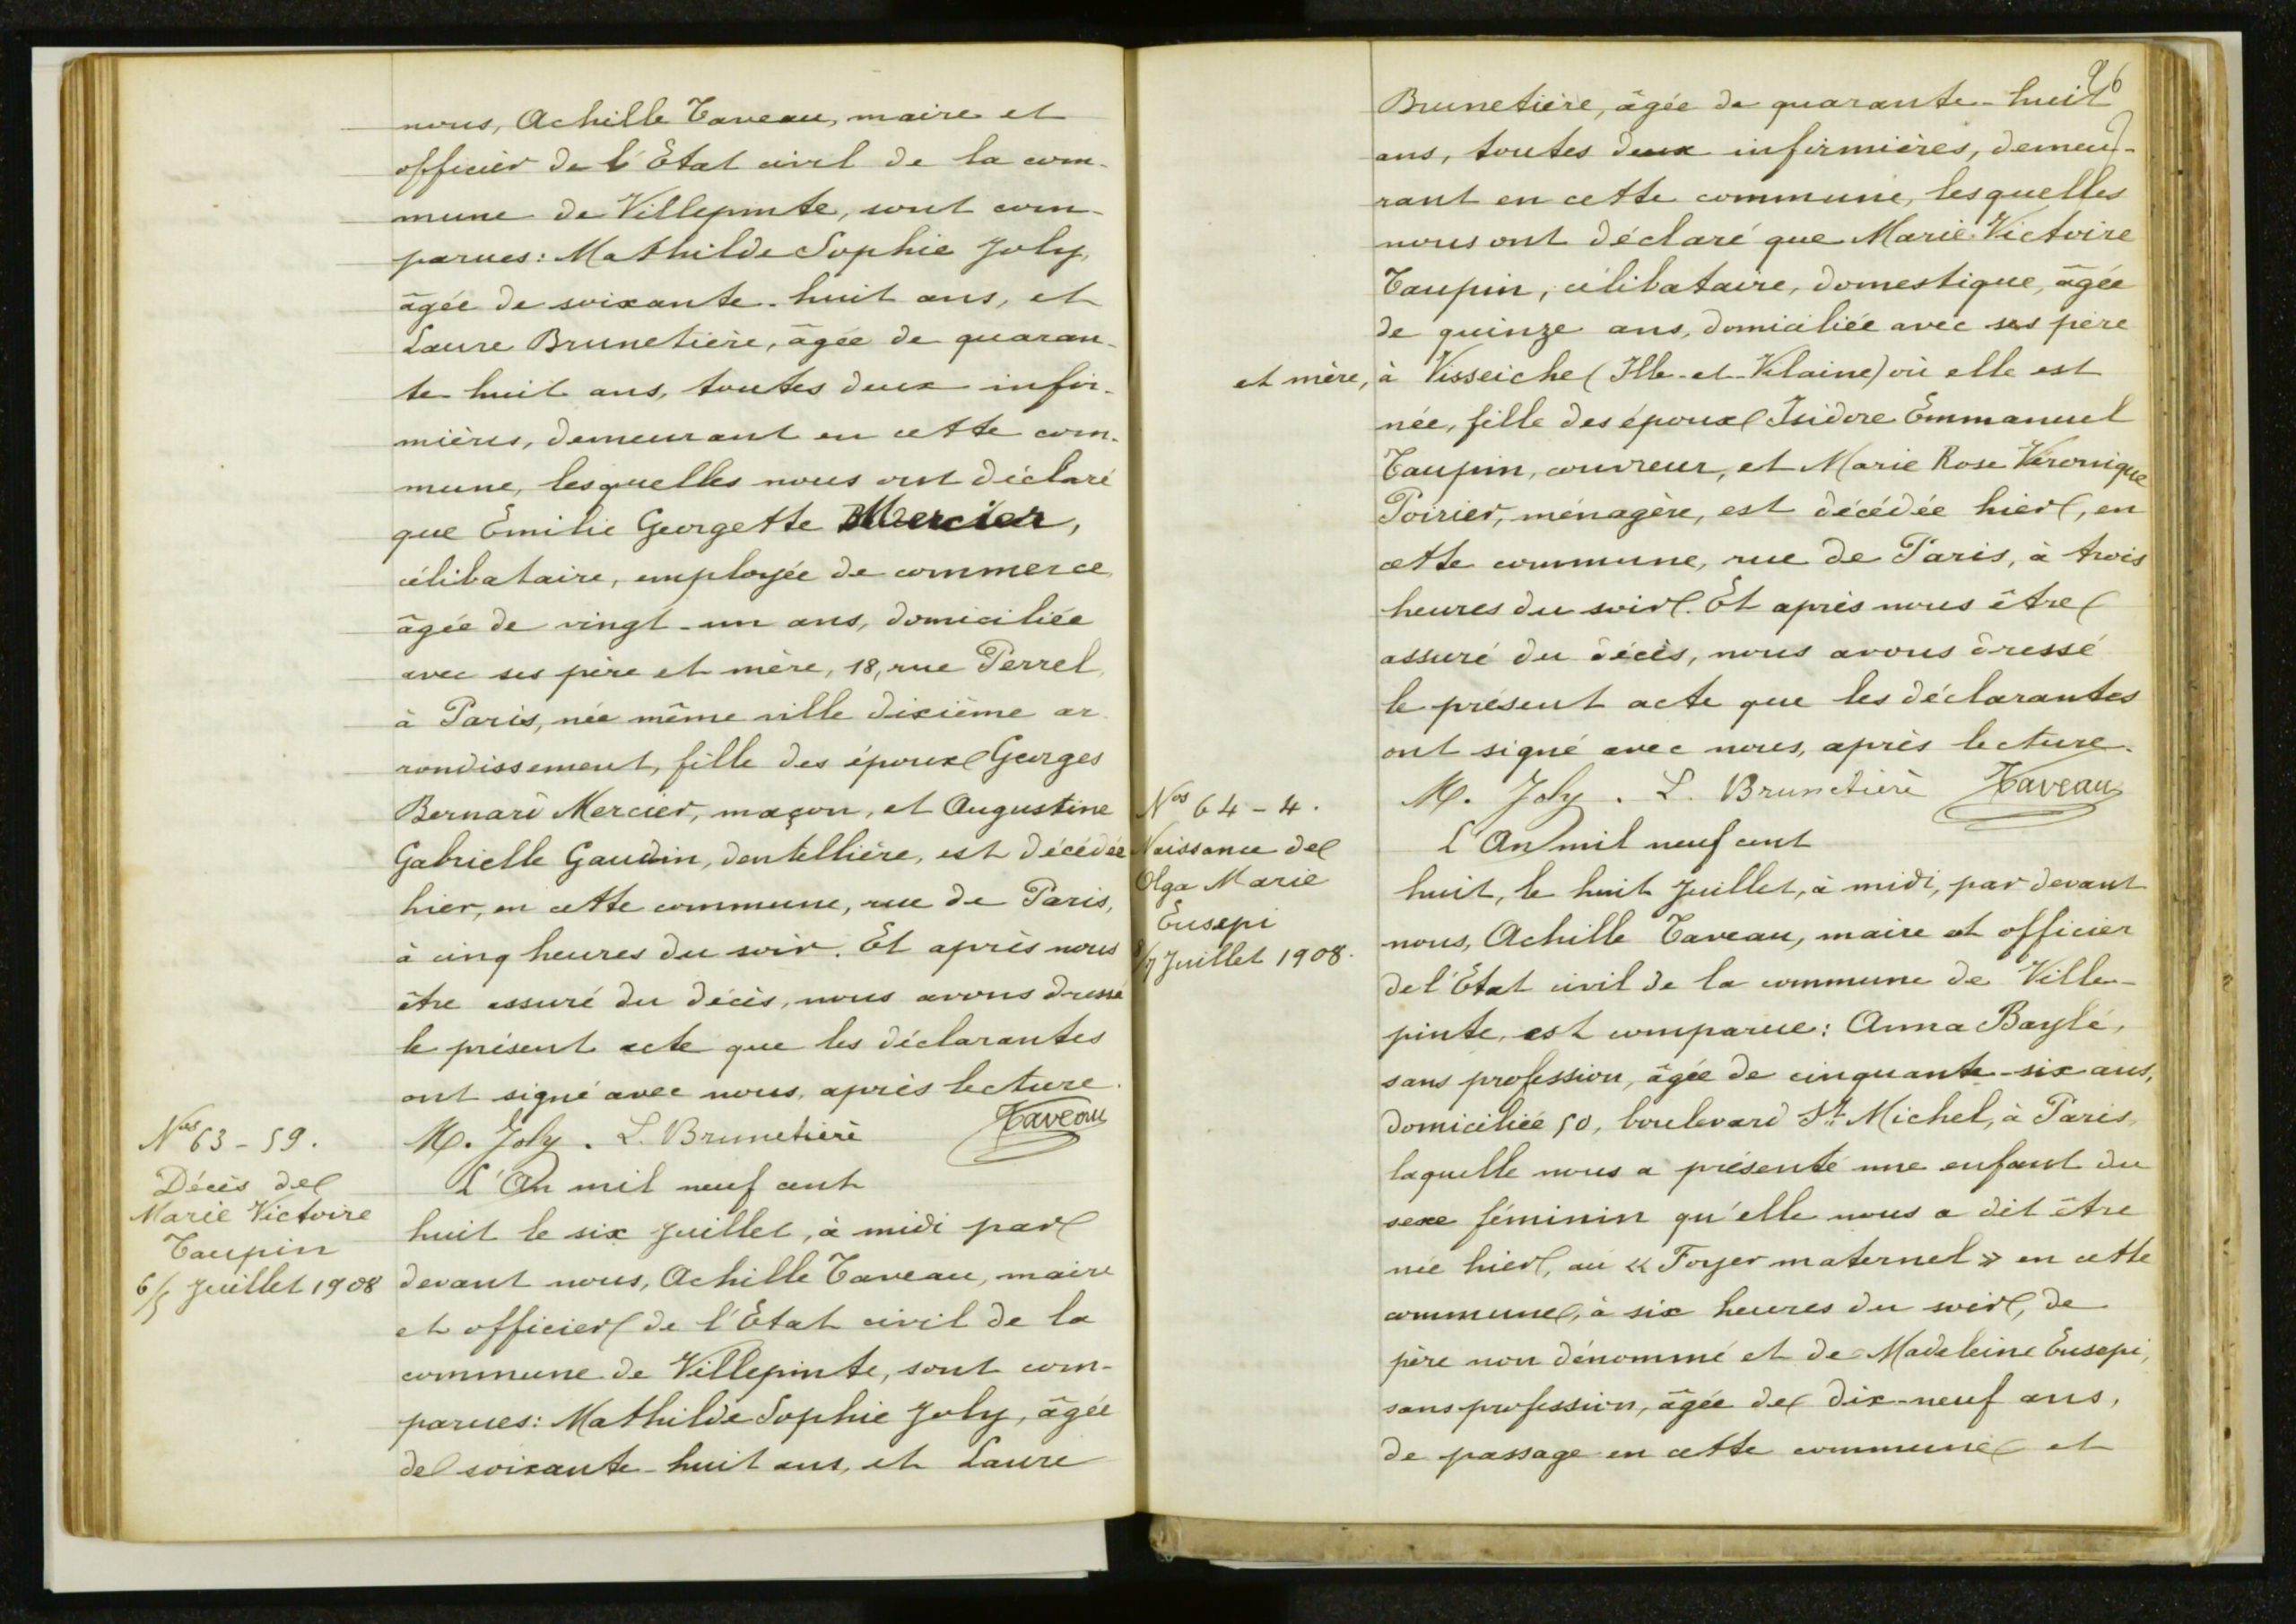 nous, Achille Taveau, maire et
officier de l'État civil de la com-
mune de Villepinte, sont com-
parues: Mathilde Sophie Joly,
âgée de soixante-huit ans, et
Laure Brunetière, âgée de quaran-
te huit ans, toutes deux infir-
mières, demeurant en cette com-
mune, lesquelles nous ont déclaré
que Émilie Georgette Mercier,
célibataire, employée de commerce,
âgée de vingt-un ans, domiciliée
avec ses père et mère, 18, rue Perrel,
à Paris, née même ville dixième ar
rondissement, fille des époux Georges
Bernard Mercier, maçon, et Augustine
Gabrielle Gaudin, dentellière, est décédée
hier, en cette commune, rue de Paris,
à cinq heures du soir. Et après nous
être assuré du décès, nous avons dressé
le présent acte que les déclarantes
ont signé avec nous, après lecture.
M. Joly. L. Brunetière Taveau
Nos 63-59.
Décès de
Marie Victoire
Taupin
6/5 Juillet 1908
L'An mil neuf cent
huit le six Juillet, à midi par
devant nous, Achille Taveau, maire
et officier de l'État civil de la
commune de Villepinte, sont com-
parues: Mathilde Sophie Joly, âgée
de soixante-huit ans, et Laure
26
Brunetière, âgée de quarante-huit
ans, toutes deux infirmières, demeu-
rant en cette commune, lesquelles
nous ont déclaré que Marie Victoire
Taupin, célibataire, domestique, âgée
de quinze ans, domiciliée avec ses père
et mère, à Visseiche (Ille-et-Vilaine) où elle est
née, fille des époux Isidore Emmanuel
Taupin, couvreur, et Marie Rose Véronique
Poirier, ménagère, est décédée hier, en
cette commune, rue de Paris, à trois
heures du soir. Et après nous être
assuré du décès, nous avons dressé
le présent acte que les déclarantes
ont signé avec nous, après lecture.
M. Joly. L. Brunetière Taveau
Nos 64-4.
Naissance de
Olga Marie
Eusepi
8/7 Juillet 1908.
L'An mil neuf cent
huit, le huit Juillet, à midi, par devant
nous, Achille Taveau, maire et officier
de l'État civil de la commune de Ville-
pinte, est comparue: Anna Baylé,
sans profession, âgée de cinquante-six ans,
domiciliée 50, boulevard St Michel, à Paris,
laquelle nous a présenté une enfant du
sexe féminin qu'elle nous a dit être
née hier, au « Foyer maternel » en cette
commune, à six heures du soir, de
père non dénommé et de Madeleine Eusepi,
sans profession, âgée de dix-neuf ans,
de passage en cette commune et